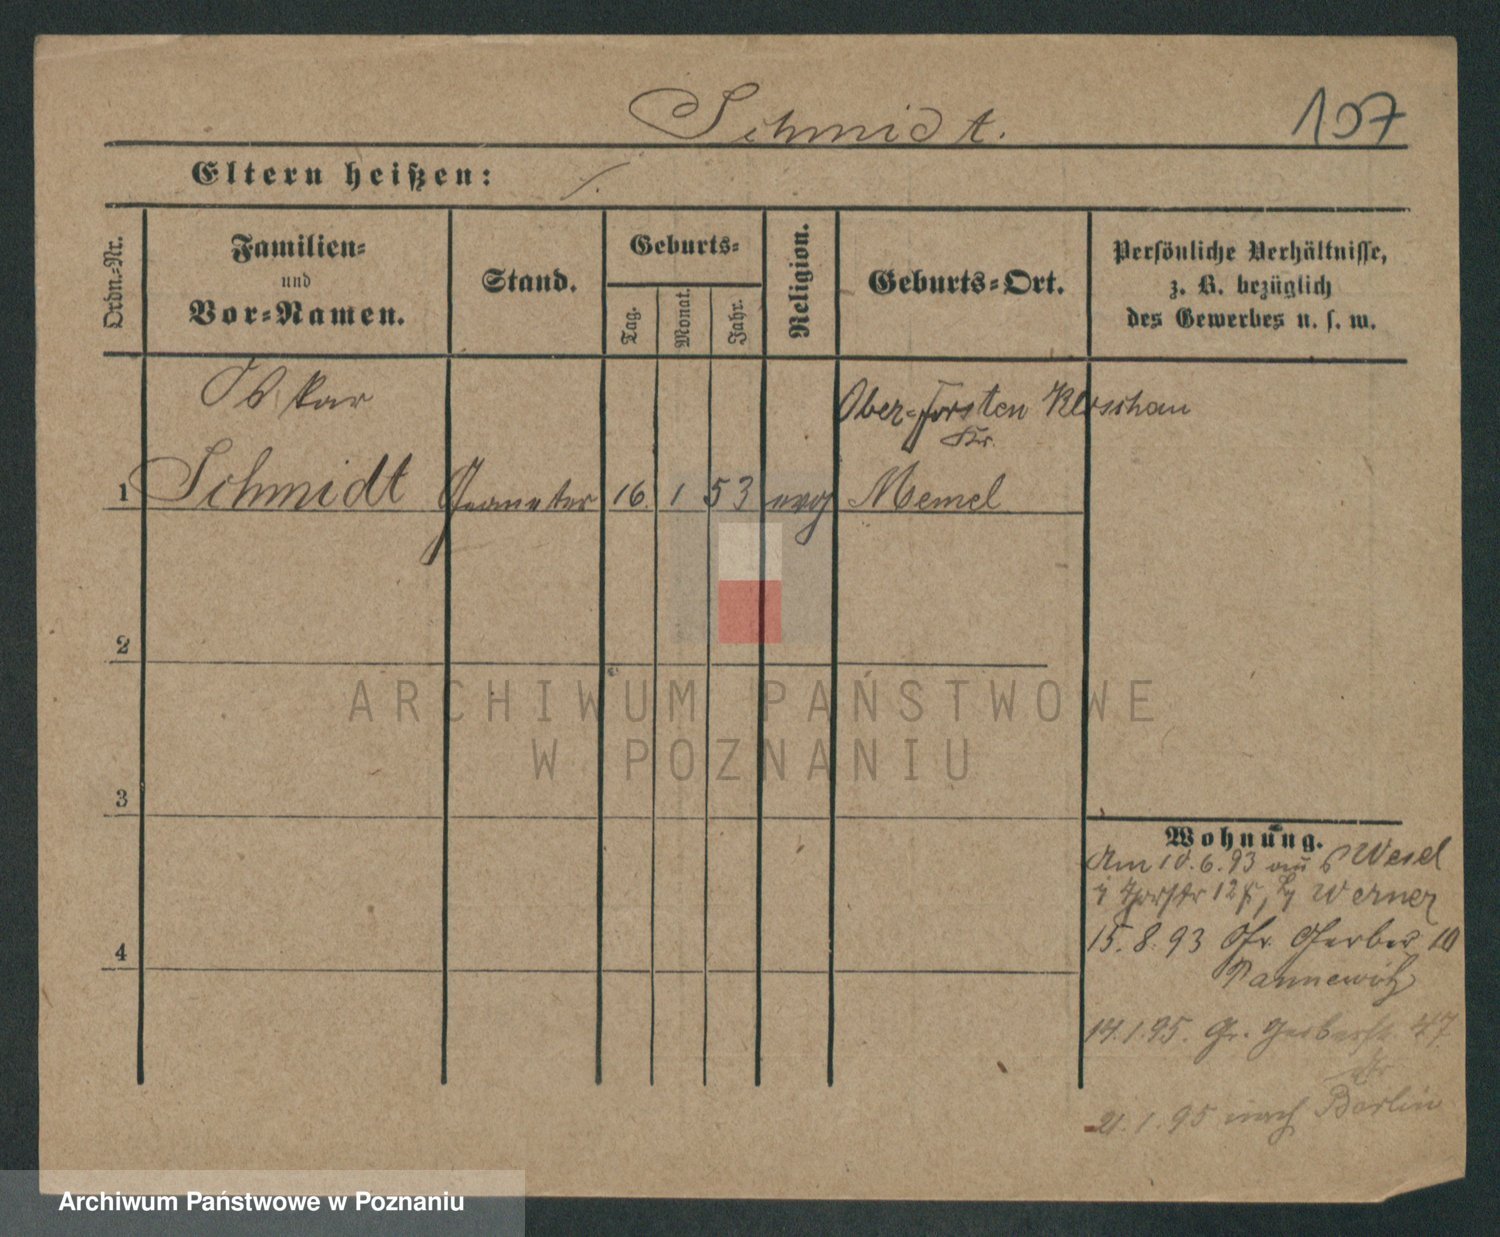 Schmidt.
107
Eltern heißen:
Ordn.-Nr.
Familien-
und
Vor-Namen.
Stand.
Geburts-
Tag.
Monat.
Jahr.
Religion.
Geburts-Ort.
Persönliche Verhältnisse,
z. B. bezüglich
des Gewerbes u. s. w.
Oskar
Ober-Forsten
Kr.
1 Schmidt Geometer 16. 1 53 evg Memel
2
ARCHIWUM PAŃSTWOWE
W POZNANIU
3
Wohnung.
Am 10.6.93 aus Wesel
12 Werner
15.8.93 Gr. Gerber 10
Pannewitz
14.1.95. Gr. Gerberstr 47
21.1.95 nach Berlin
4
Archiwum Państwowe w Poznaniu